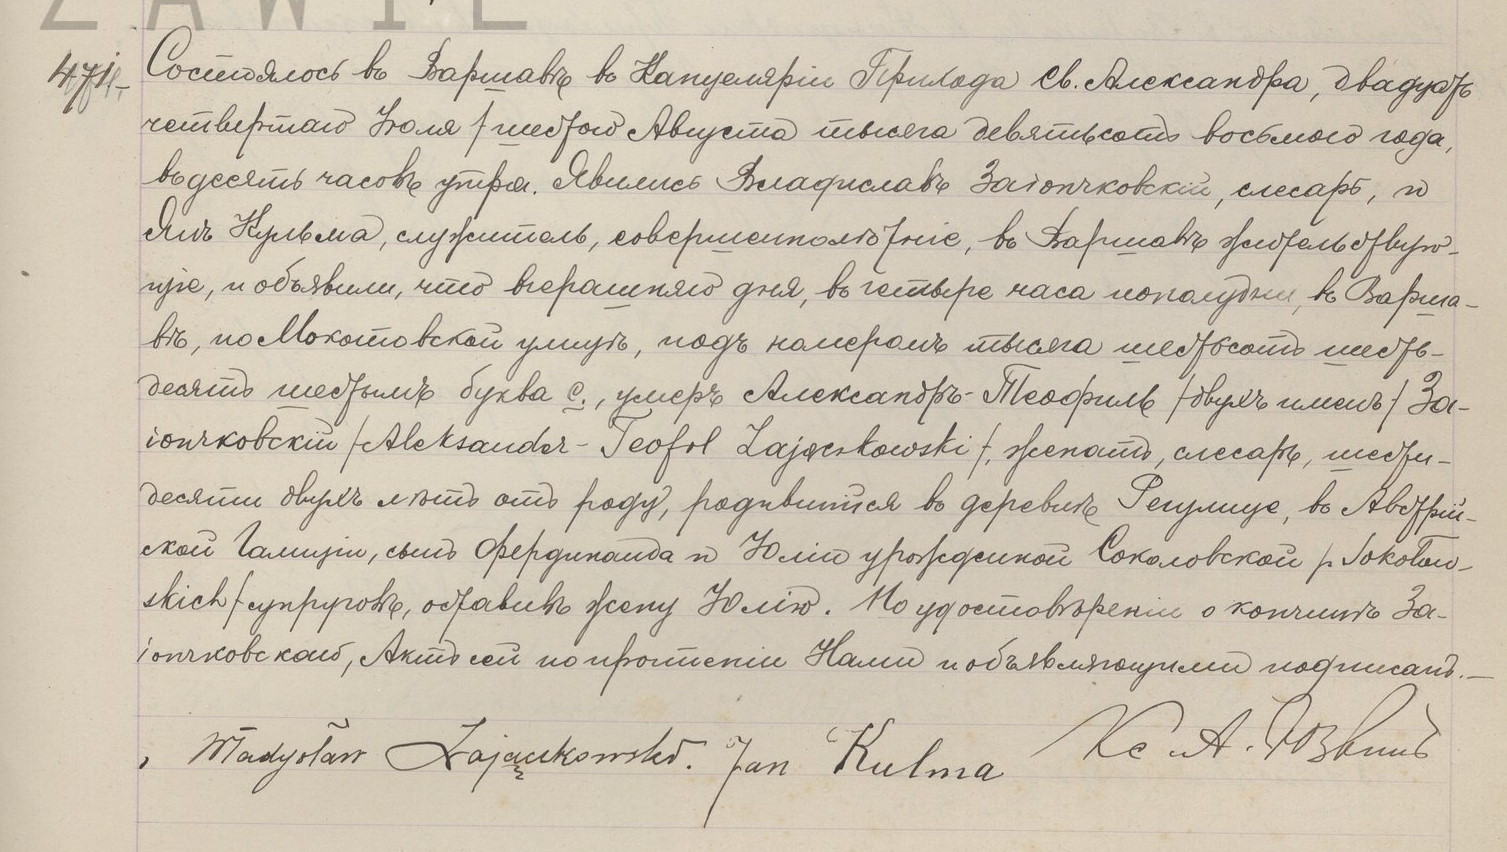 ZAWIE
471.
Состоялось въ Варшавѣ въ Канцеляріи Прихода Св. Александра, двадцать
четвертаго Іюля / шестого Августа тысяча девятьсотъ восьмого года,
въ десять часовъ утра. Явились Владиславъ Заіончковскій, слесарь, и
Янъ Кульма, служитель, совершеннолѣтніе, въ Варшавѣ жительствую-
щіе, и объявили, что вчерашняго дня, въ четыре часа пополудни, въ Варша-
вѣ, по Мокотовской улицѣ, подъ номеромъ тысяча шестьсотъ шесть-
десятъ шестымъ буква С., умеръ Александръ-Теофиль /двухъ именъ/ За-
іончковскій /Aleksander-Teofol Zajączkowski/, женатъ, слесарь, шести-
десяти двухъ лѣтъ отъ роду, родившійся въ деревнѣ Регулице, въ Австрій-
ской Галиціи, сынъ Фердинанда и Юліи урожденной Соколовской /z Sokołow-
skich/ супруговъ, оставивъ жену Юлію. По удостовѣреніи о кончинѣ За-
іончковскаго, Актъ сей по прочтеніи Нами и объявляющими подписанъ.—
Władysław Zajączkowski. Jan Kulma Кс А.